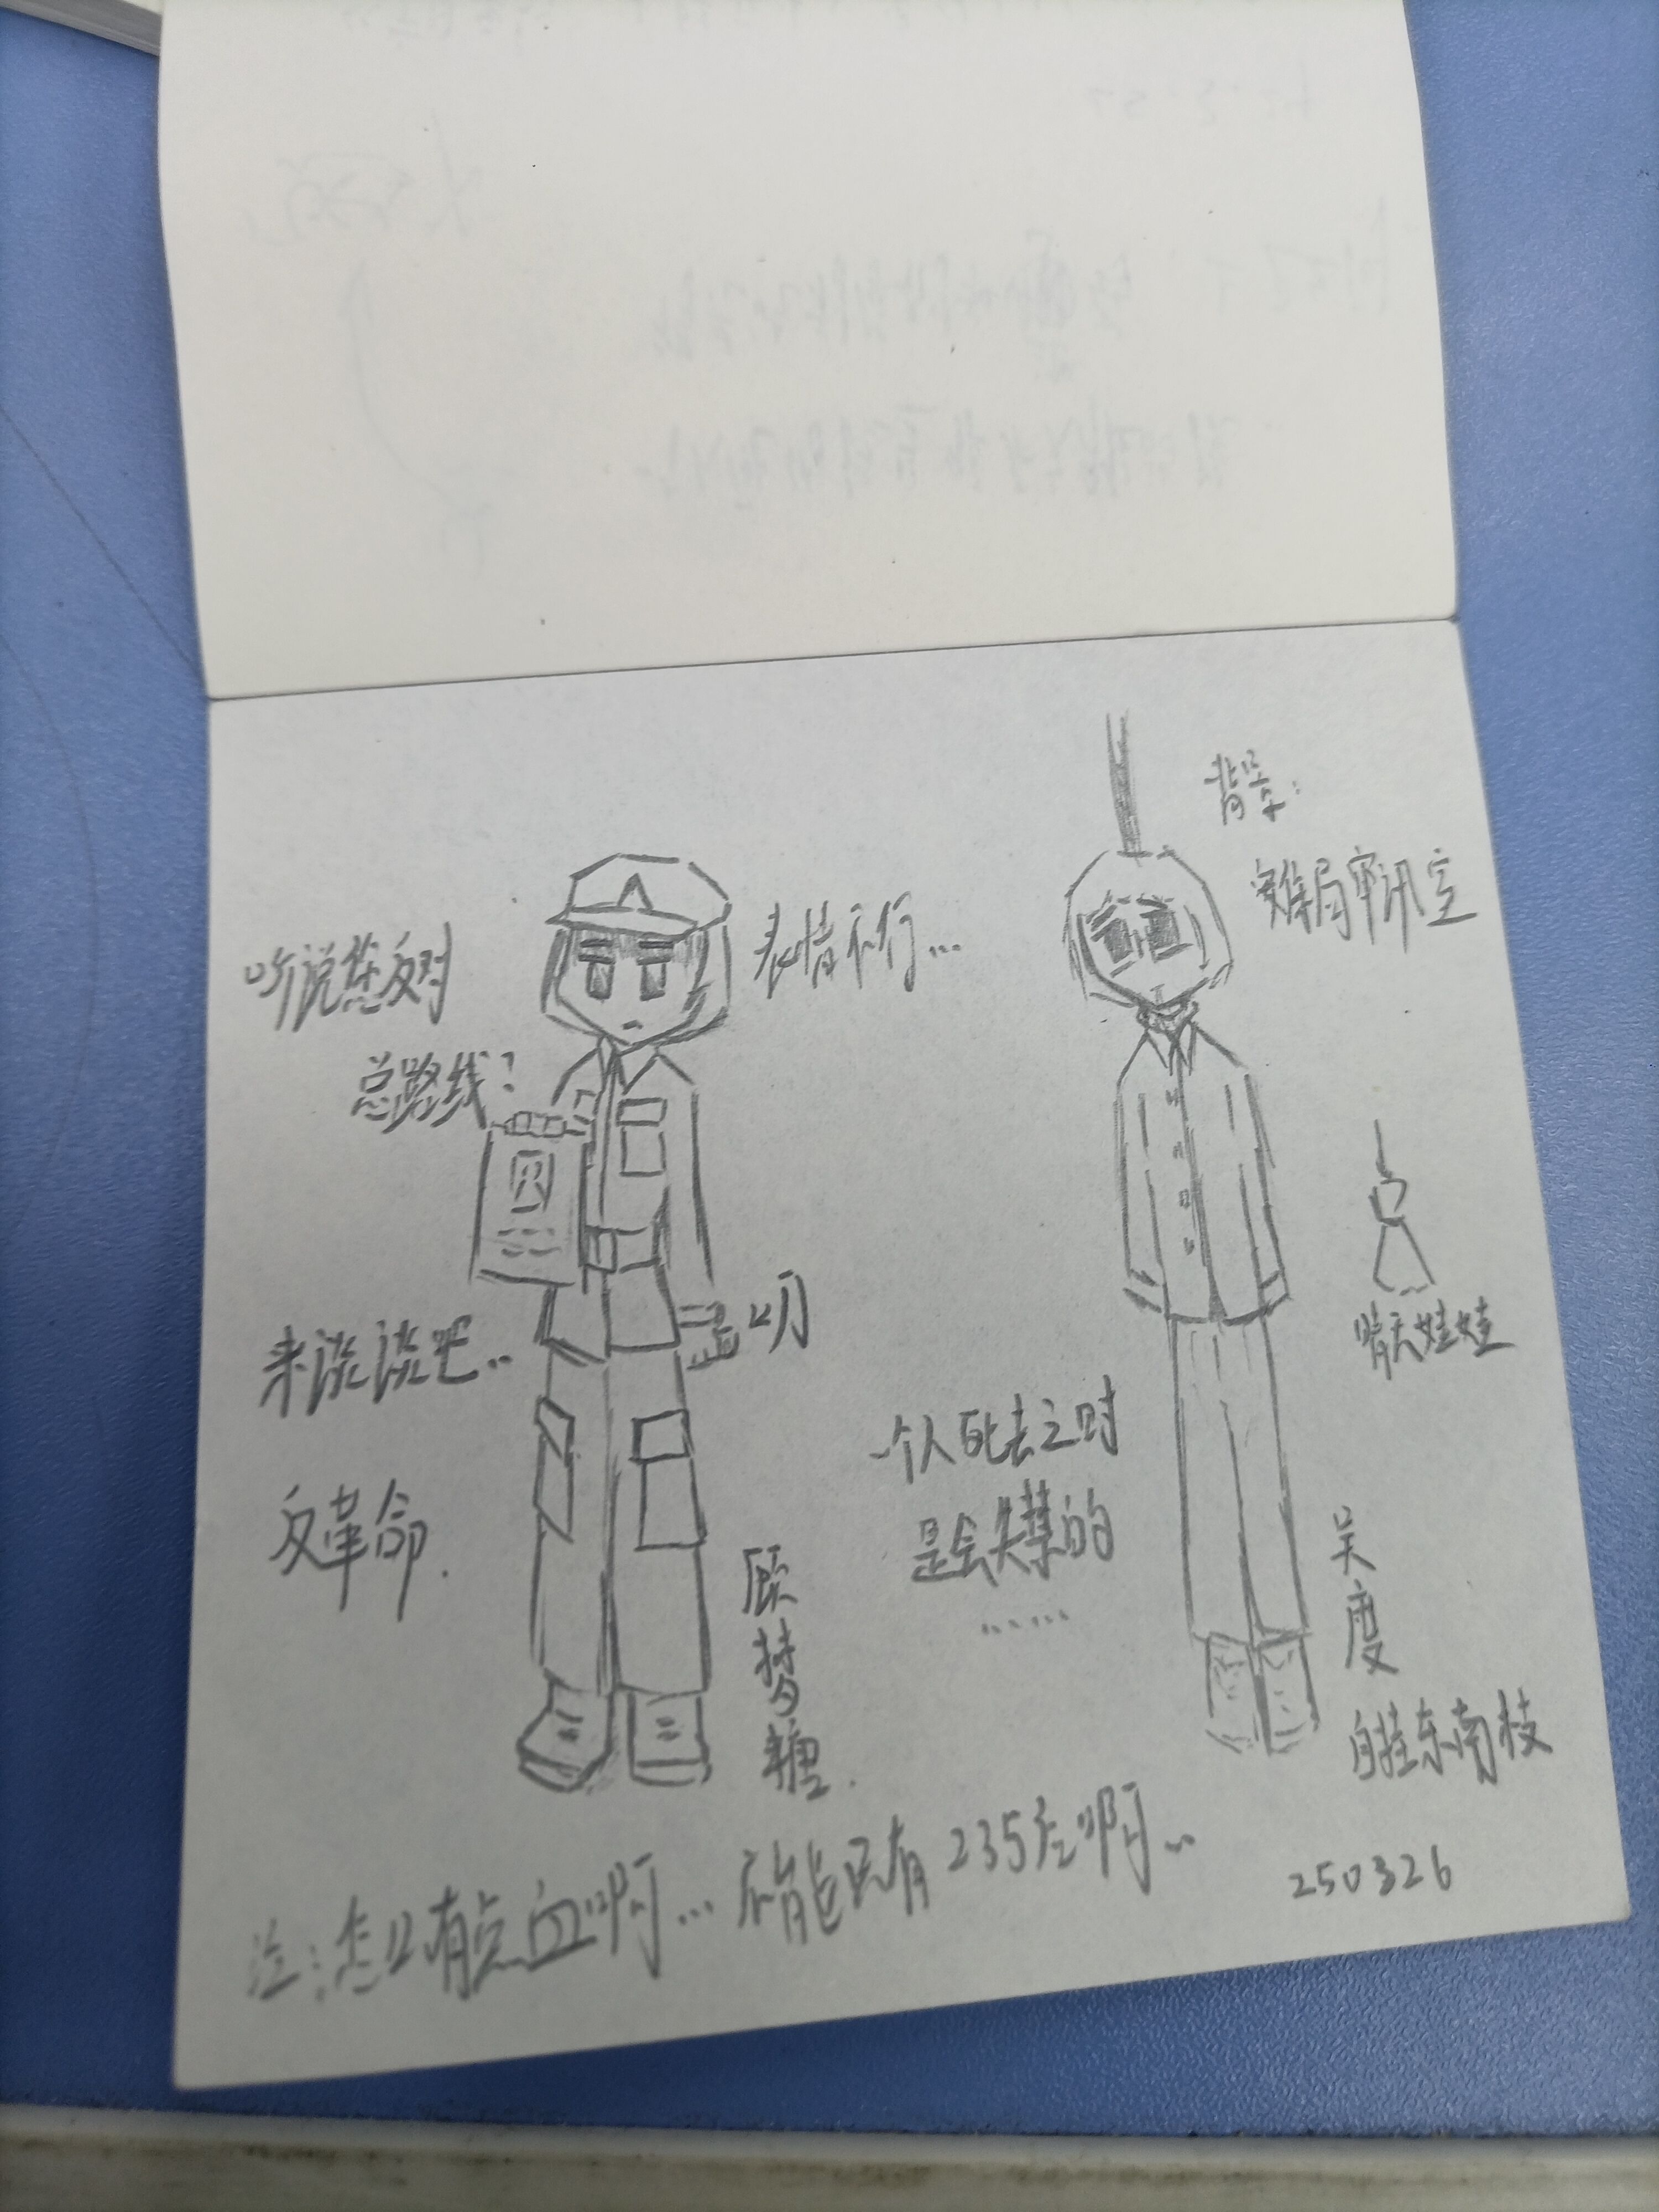 听说您反对
总路线？
表情不行…
背景：
审讯室
叨
来谈谈吧…
反革命.
晴天娃娃
一个人死去之时
是会失禁的
……
顾梦
吴度
自挂东南枝
注：怎么有点血啊… 不能只有235左啊…
250326